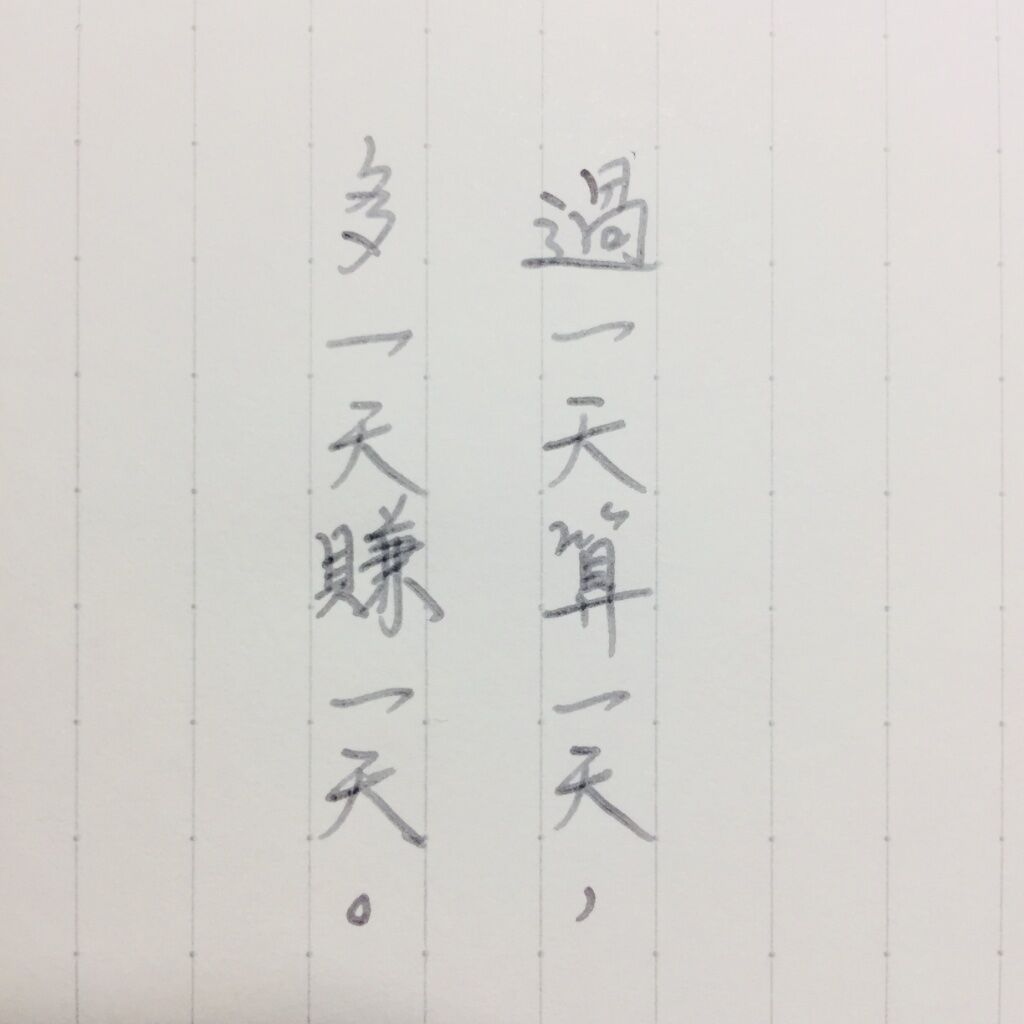 過一天算一天，
多一天賺一天。